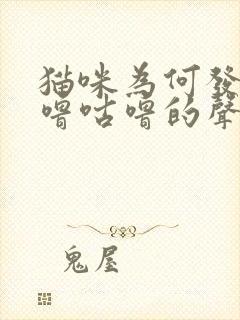 猫咪為何發
嚕咕嚕的聲
鬼屋